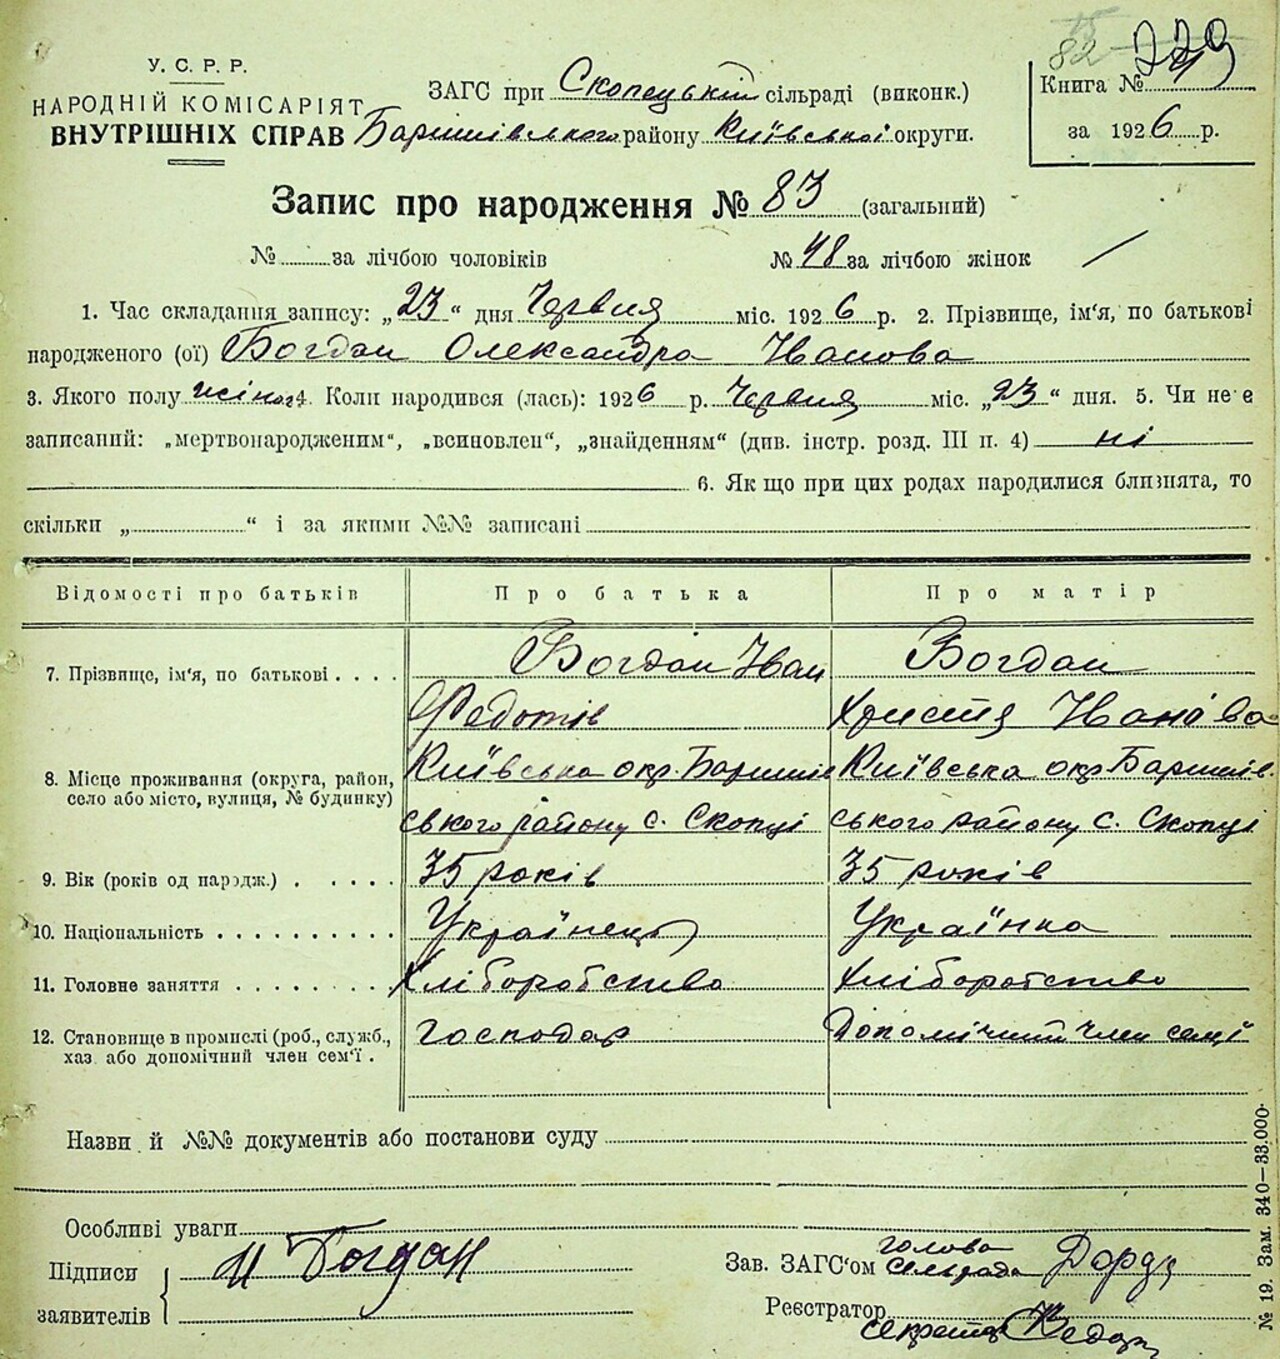 82 229
У. С. Р. Р.
НАРОДНІЙ КОМІСАРІЯТ
ВНУТРІШНІХ СПРАВ
ЗАГС при Скопецькій сільраді (виконк.)
Баришівського району Київської округи.
Книга №
за 1926 р.
Запис про народження № 83 (загальний)
№ за лічбою чоловіків № 48 за лічбою жінок
1. Час складання запису: „23“ дня Червня міс. 1926 р. 2. Прізвище, ім‘я, по батькові
народженого (ої) Богдан Олександра Іванова
3. Якого полу жіноч 4. Коли народився (лась): 1926 р. Червня міс. „23“ дня. 5. Чи не є
записаний: „мертвонародженим“, „всиновлен“, „знайденням“ (див. інстр. розд. III п. 4) ні
6. Як що при цих родах народилися близнята, то
скільки „ “ і за якими №№ записані
Відомості про батьків Про батька Про матір
7. Прізвище, ім‘я, по батькові . . . . Богдан Іван Богдан
Федотів Христя Іванова
8. Місце проживання (округа, район, Київська окр. Баришів Київська окр. Баришів
село або місто, вулиця, № будинку)
ського району с. Скопці ського району с. Скопці
9. Вік (років од народж.) . . . . . 35 років 35 років
10. Національність . . . . . . . . . . Українець Українка
11. Головне заняття . . . . . . . . . Хліборобство Хліборобство
12. Становище в промислі (роб., служб., Господар Допомічний член семї
хаз. або допомічний член сем‘ї .
Назви й №№ документів або постанови суду
Особливі уваги
Підписи
заявителів
И Богдан
Зав. ЗАГС‘ом голова
сельрада
Реєстратор
секретар
№ 19. Зам. 340—33.000